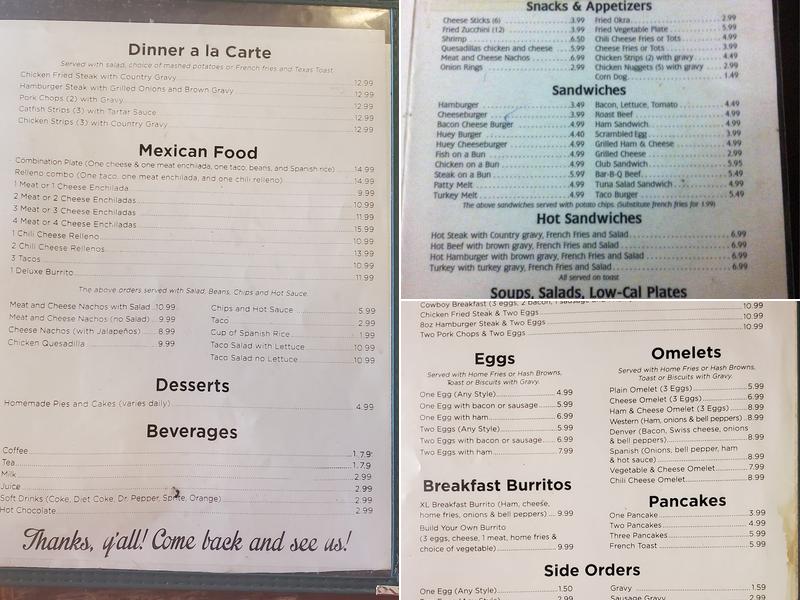 Dinner a la Carte
Served with salad, choice of mashed potatoes or French fries and Texas Toast.
Chicken Fried Steak with Country Gravy 12.99
Hamburger Steak with Grilled Onions and Brown Gravy 12.99
Pork Chops (2) with Gravy 12.99
Catfish Strips (3) with Tartar Sauce 12.99
Chicken Strips (3) with Country Gravy 12.99
Mexican Food
Combination Plate (One cheese & one meat enchilada, one taco, beans, and Spanish rice) 14.99
Relleno combo (One taco, one meat enchilada, and one chili relleno) 14.99
1 Meat or 1 Cheese Enchilada 9.99
2 Meat or 2 Cheese Enchiladas 10.99
3 Meat or 3 Cheese Enchiladas 11.99
4 Meat or 4 Cheese Enchiladas 15.99
1 Chili Cheese Relleno 10.99
2 Chili Cheese Rellenos 13.99
3 Tacos 10.99
1 Deluxe Burrito 11.99
The above orders served with Salad, Beans, Chips and Hot Sauce.
Meat and Cheese Nachos with Salad 10.99
Meat and Cheese Nachos (no Salad) 9.99
Cheese Nachos (with Jalapeños) 8.99
Chicken Quesadilla 9.99
Chips and Hot Sauce 5.99
Taco 2.99
Cup of Spanish Rice 1.99
Taco Salad with Lettuce 10.99
Taco Salad no Lettuce 10.99
Desserts
Homemade Pies and Cakes (varies daily) 4.99
Beverages
Coffee 1.79
Tea 1.79
Milk 2.99
Juice 2.99
Soft Drinks (Coke, Diet Coke, Dr. Pepper, Sprite, Orange) 2.99
Hot Chocolate 2.99
Thanks, y'all! Come back and see us!
Snacks & Appetizers
Cheese Sticks (6) 3.99
Fried Zucchini (12) 3.99
Shrimp 6.50
Quesadillas chicken and cheese 5.99
Meat and Cheese Nachos 6.99
Onion Rings 2.99
Fried Okra 2.99
Fried Vegetable Plate 5.99
Chili Cheese Fries or Tots 4.99
Cheese Fries or Tots 3.99
Chicken Strips (2) with gravy 4.99
Chicken Nuggets (5) with gravy 2.99
Corn Dog 1.49
Sandwiches
Hamburger 3.49
Cheeseburger 3.99
Bacon Cheese Burger 4.99
Huey Burger 4.40
Huey Cheeseburger 4.99
Fish on a Bun 4.99
Chicken on a Bun 4.99
Steak on a Bun 5.99
Patty Melt 4.99
Turkey Melt 4.99
Bacon, Lettuce, Tomato 4.49
Roast Beef 4.99
Ham Sandwich 4.99
Scrambled Egg 3.99
Grilled Ham & Cheese 4.99
Grilled Cheese 2.99
Club Sandwich 5.95
Bar-B-Q Beef 5.49
Tuna Salad Sandwich 4.99
Taco Burger 5.49
The above sandwiches served with potato chips (Substitute french fries for 1.99)
Hot Sandwiches
Hot Steak with Country gravy, French Fries and Salad 6.99
Hot Beef with brown gravy, French Fries and Salad 6.99
Hot Hamburger with brown gravy, French Fries and Salad 6.99
Turkey with turkey gravy, French Fries and Salad 6.99
All served on toast
Soups, Salads, Low-Cal Plates
Cowboy Breakfast (3 eggs, 2 bacon, 1 sausage 10.99
Chicken Fried Steak & Two Eggs 10.99
8oz Hamburger Steak & Two Eggs 10.99
Two Pork Chops & Two Eggs 10.99
Eggs
Served with Home Fries or Hash Browns,
Toast or Biscuits with Gravy.
One Egg (Any Style) 4.99
One Egg with bacon or sausage 5.99
One Egg with ham 6.99
Two Eggs (Any Style) 5.99
Two Eggs with bacon or sausage 6.99
Two Eggs with ham 7.99
Breakfast Burritos
XL Breakfast Burrito (Ham, cheese,
home fries, onions & bell peppers) 9.99
Build Your Own Burrito
(3 eggs, cheese, 1 meat, home fries &
choice of vegetable) 9.99
Omelets
Served with Home Fries or Hash Browns,
Toast or Biscuits with Gravy.
Plain Omelet (3 Eggs) 5.99
Cheese Omelet (3 Eggs) 6.99
Ham & Cheese Omelet (3 Eggs) 8.99
Western (Ham, onions & bell peppers) 8.99
Denver (Bacon, Swiss cheese, onions
& bell peppers) 8.99
Spanish (Onions, bell pepper, ham
& hot sauce) 8.99
Vegetable & Cheese Omelet 7.99
Chili Cheese Omelet 8.99
Pancakes
One Pancake 3.99
Two Pancakes 4.99
Three Pancakes 5.99
French Toast 5.99
Side Orders
One Egg (Any Style) 1.50
Gravy 1.59
Sausage Gravy 2.99